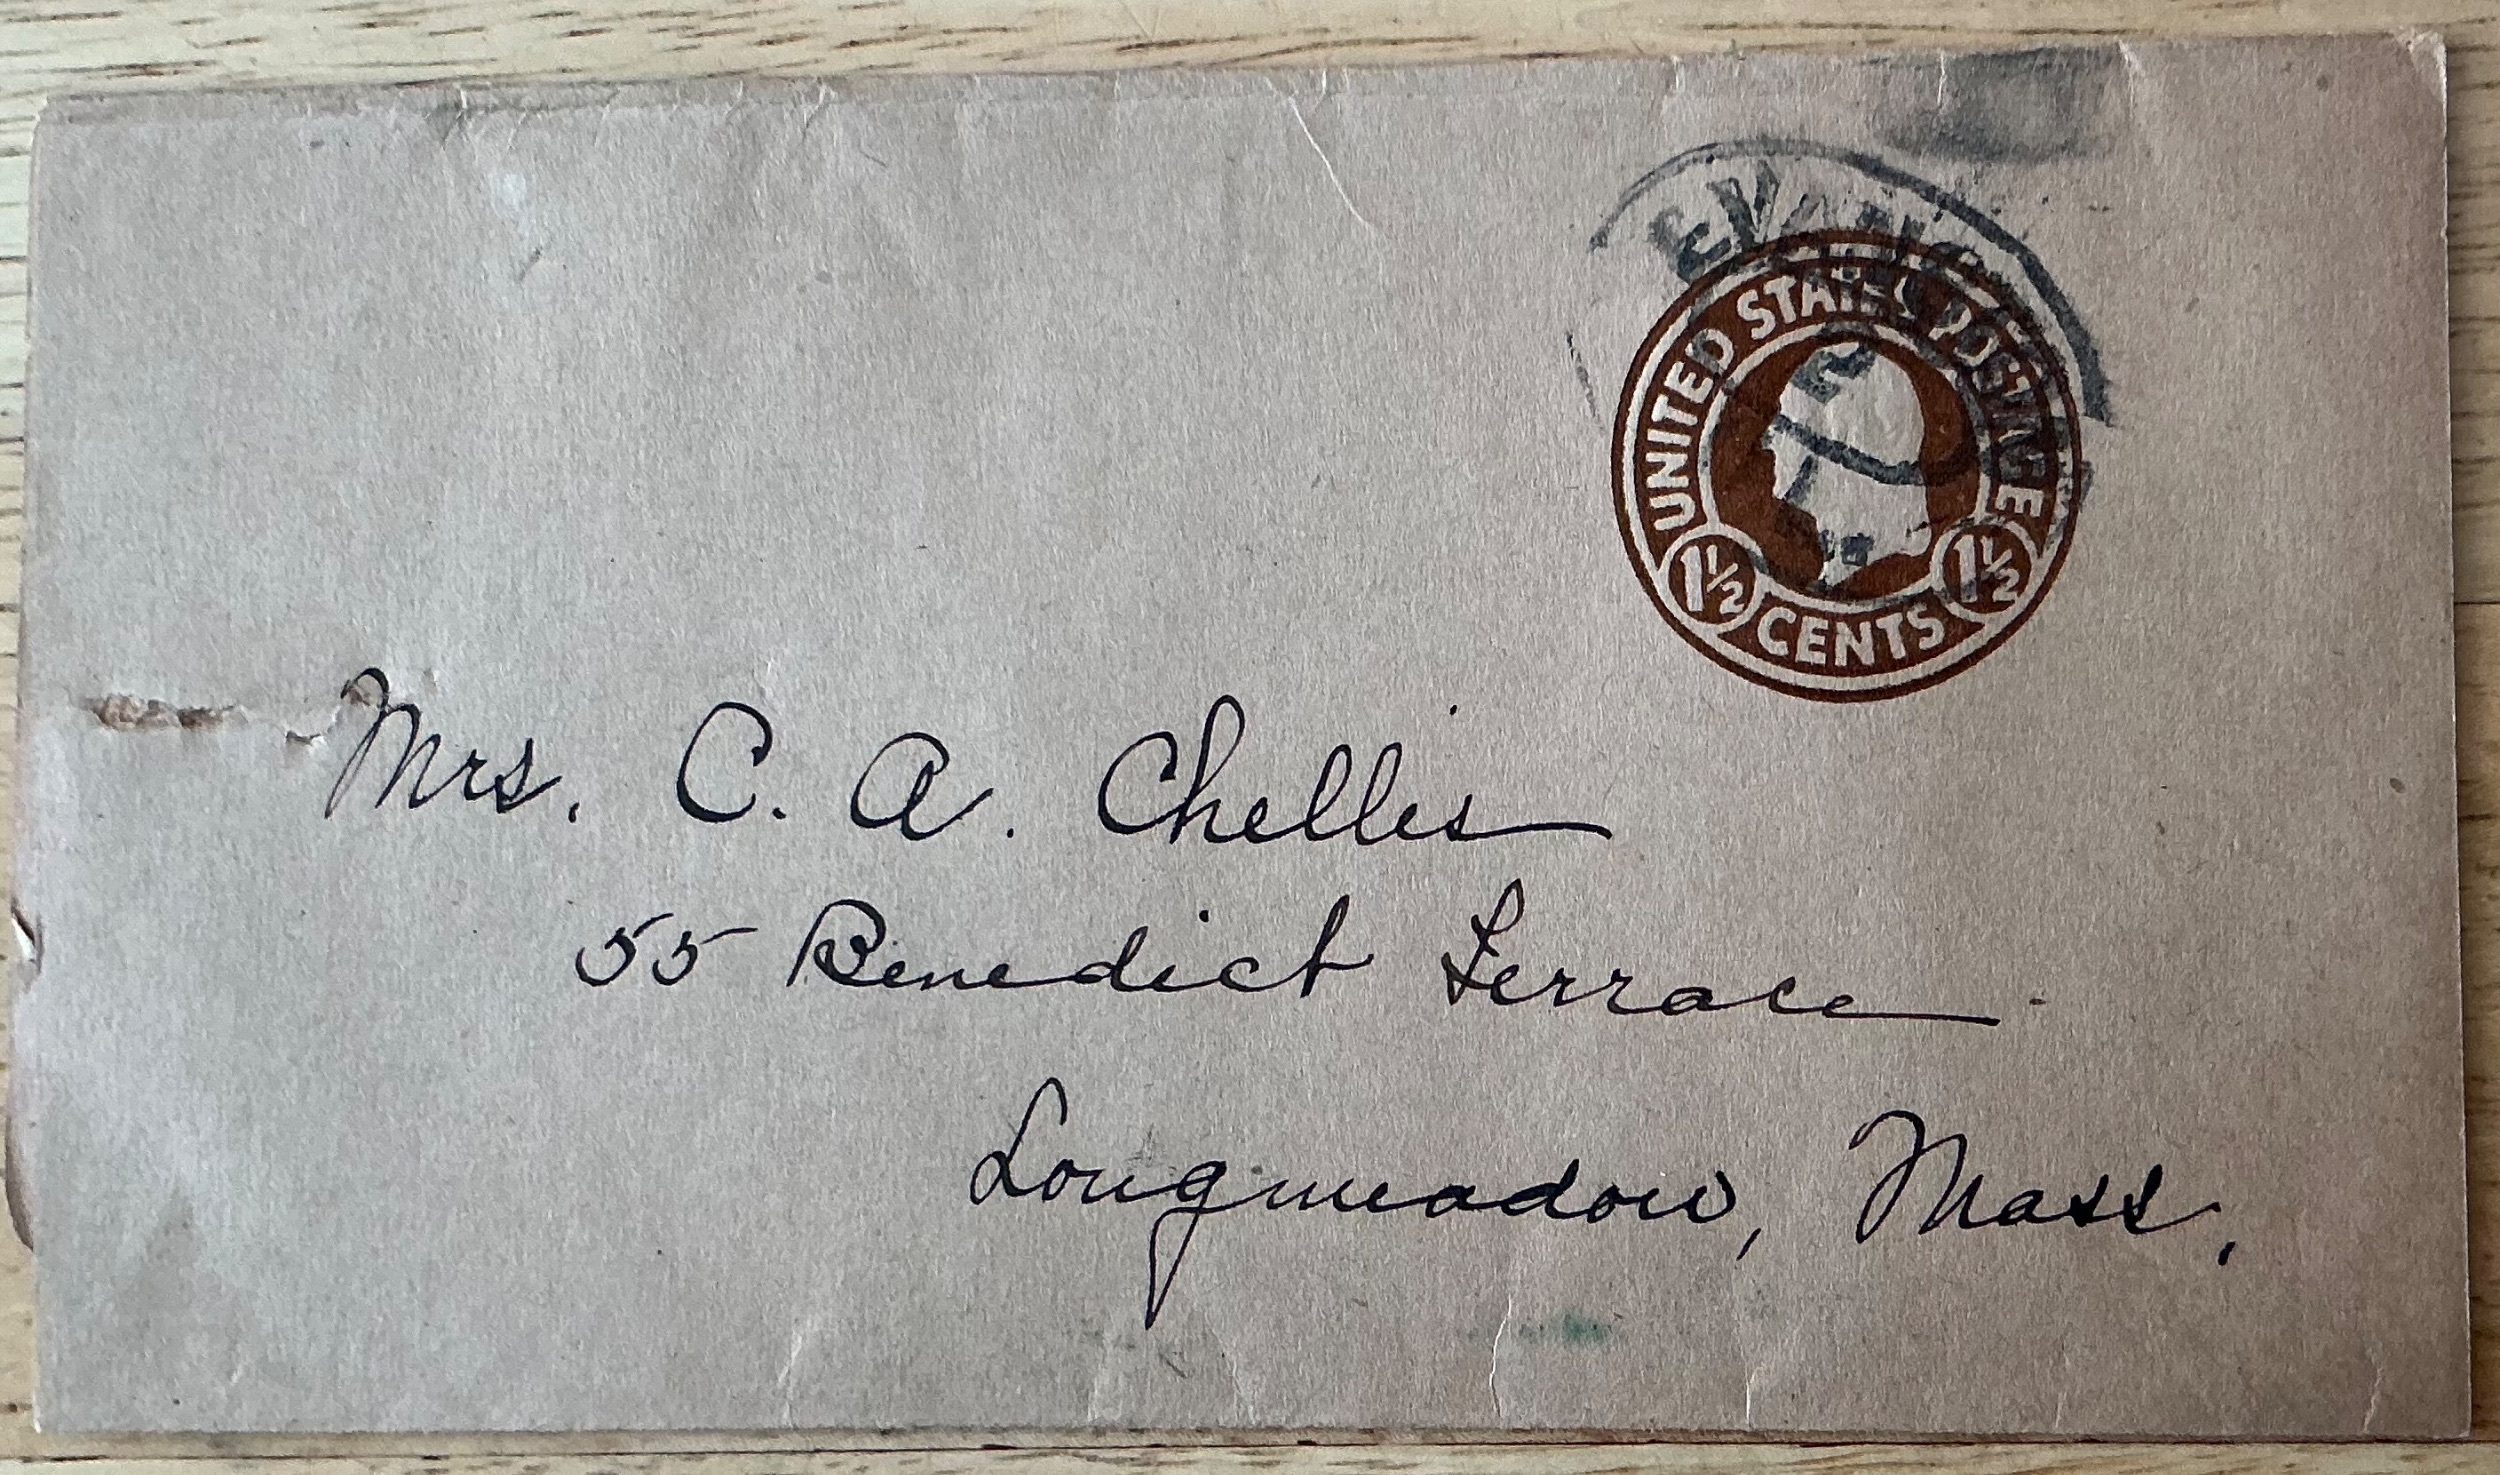 UNITED STATES POSTAGE
1½ CENTS 1½
Mrs. C. A. Chellis
55 Benedict Terrace
Longmeadow, Mass.